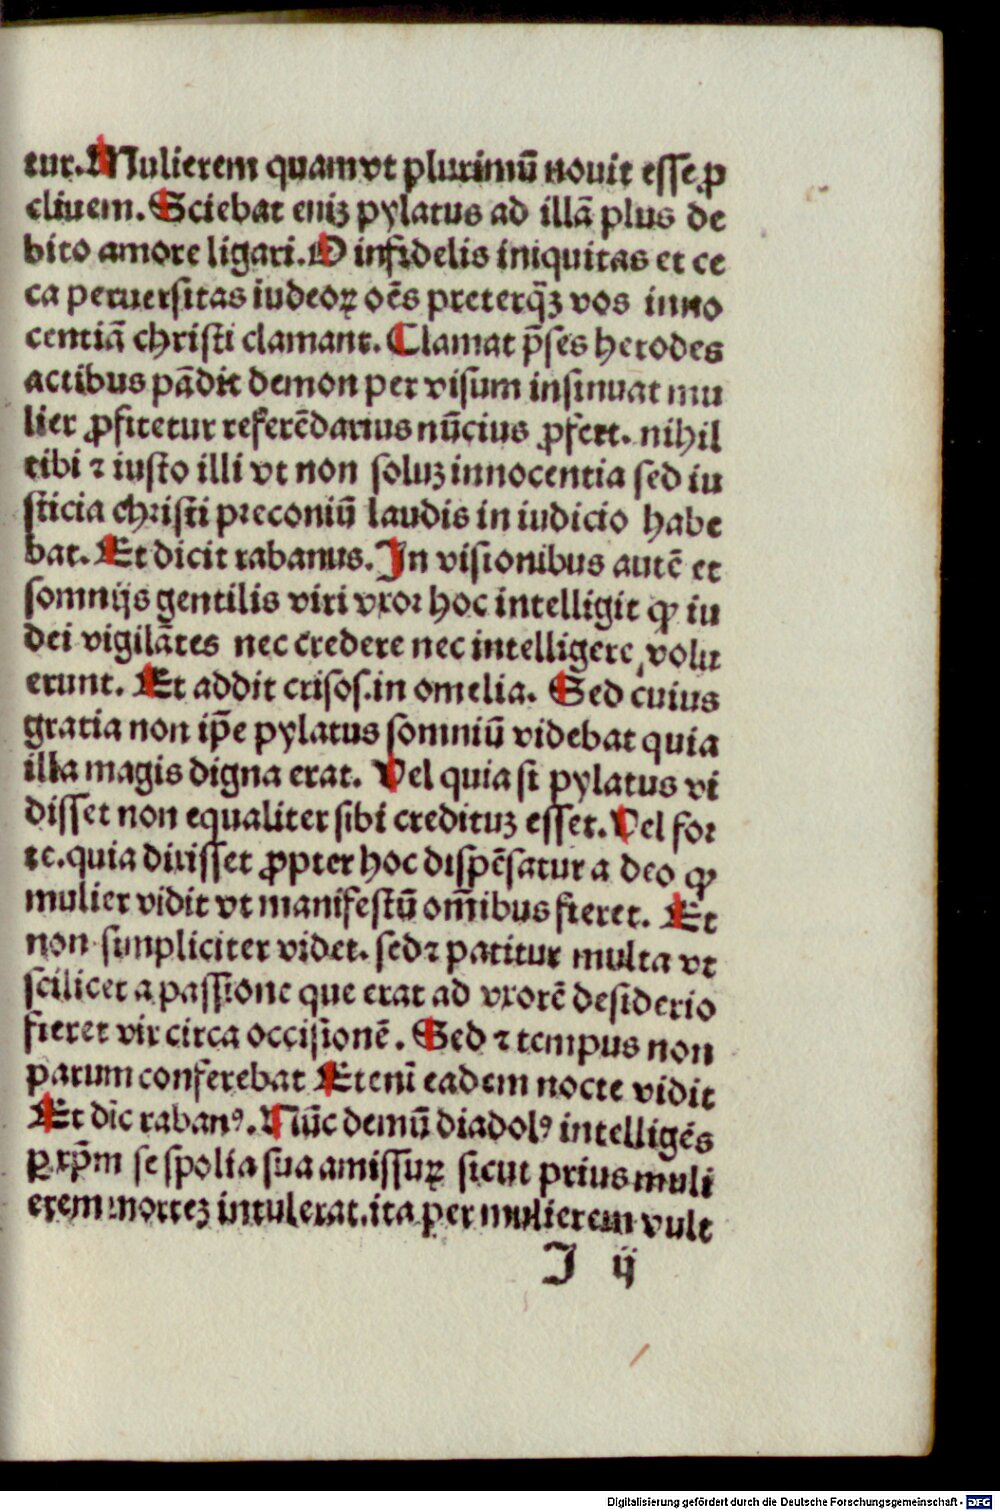 tur. Mulierem quam vt plurimū nouit esse ꝓ
cliuem. Sciebat eniꝫ pylatus ad illā plus de
bito amore ligari. O infidelis iniquitas et ce
ca peruersitas iudeoꝝ oēs preterq̄ꝫ vos inno
centiā christi clamant. Clamat p̄ses herodes
actibus pādit demon per visum insinuat mu
lier ꝓfitetur referēdarius nūcius ꝓfert. nihil
tibi ⁊ iusto illi vt non soluꝫ innocentia sed iu
sticia christi preconiū laudis in iudicio habe
bat. Et dicit rabanus. In visionibus autē et
somnijs gentilis viri vxor hoc intelligit ꝙ iu
dei vigilātes nec credere nec intelligere volu
erunt. Et addit crisos. in omelia. Sed cuius
gratia non ip̄e pylatus somniū videbat quia
illa magis digna erat. Vel quia si pylatus vi
disset non equaliter sibi credituꝫ esset. Vel for
te. quia dixisset ꝓpter hoc dispēsatur a deo ꝙ
mulier vidit vt manifestū om̄ibus fieret. Et
non simpliciter videt. sed ⁊ patitur multa vt
scilicet a passione que erat ad vxorē desiderio
fieret vir circa occisionē. Sed ⁊ tempus non
parum conferebat Etenī eadem nocte vidit
Et dic̄ rabanꝰ. Nūc demū diadolꝰ intelligēs
ꝑ xp̄m se spolia sua amissuꝝ sicut prius muli
erem morteꝫ intulerat. ita per mulierem vult
I ij
Digitalisierung gefördert durch die Deutsche Forschungsgemeinschaft - DFG